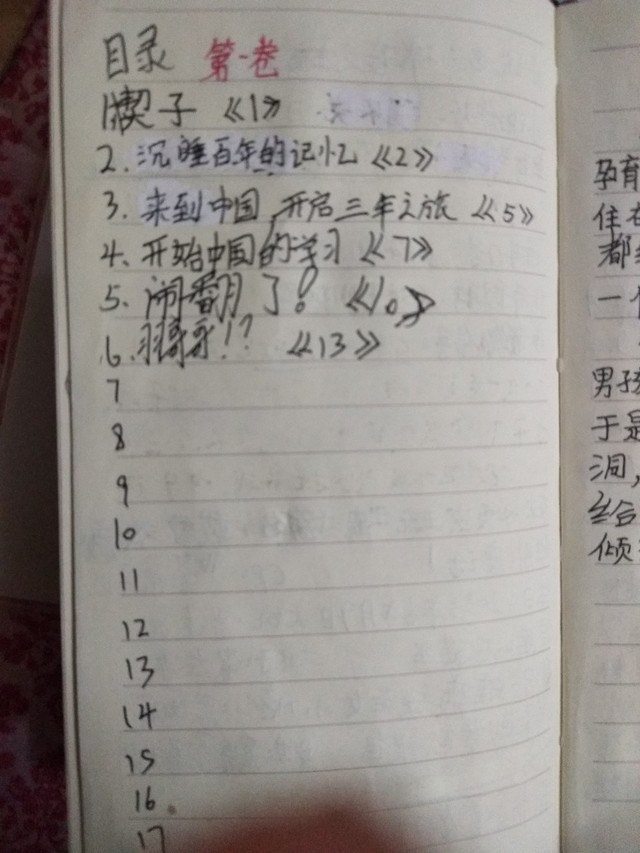 目录 第一卷
楔子 《1》
2、沉睡百年的记忆《2》
3、来到中国,开启三年之旅 《5》
4、开始中国的学习《7》
5、闹翻了! 《10》
6、哥哥!? 《13》
7
8
9
10
11
12
13
14
15
16
17
孕育
住在
都
一个
男孩
于是
洞,
给
倾